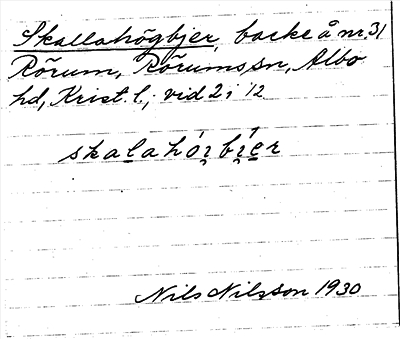 Skallahögbjer, backe å nr. 31
Rörum, Rörums sn, Albo
hd, Krist. l., vid 2 i 12
skalahói̯bi̯er
Nils Nilsson 1930